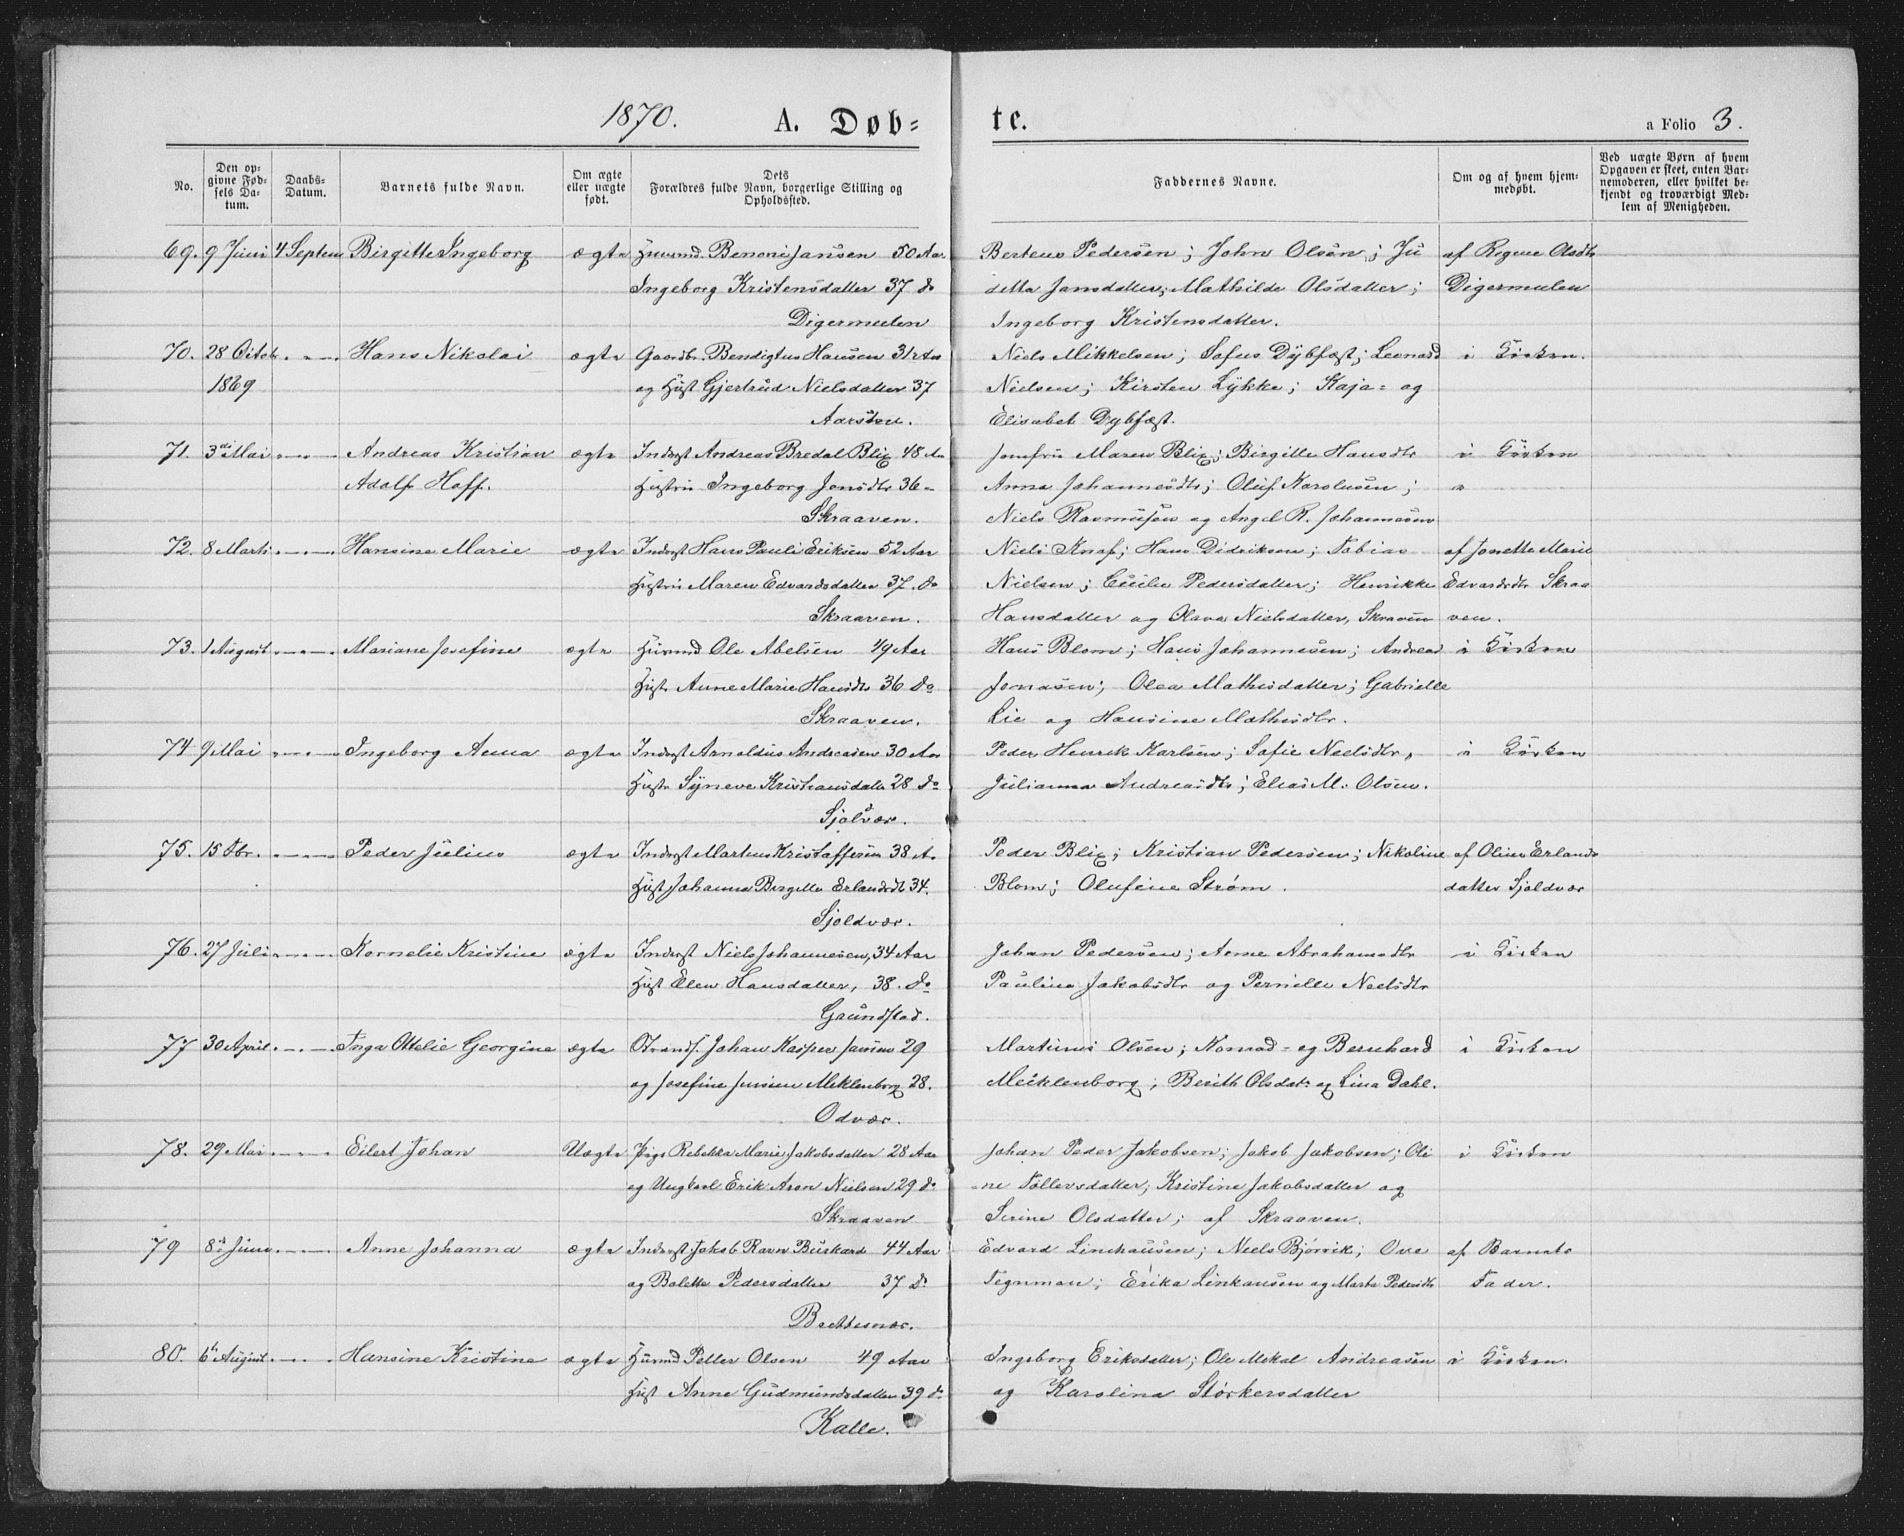 1870. A. Døb= te. a Folio 3.
No. Den opgivne Fødsels Datum. Daabs-Datum. Barnets fulde Navn. Om ægte eller uægte født. Dets Forældres fulde Navn, borgerlige Stilling og Opholdssted. Faddernes Navne. Om og af hvem hjemmedøbt. Ved uægte Børn af hvem Opgaven er skeet, enten Barnemoderen, eller hvilket bekjendt og troværdigt Medlem af Menigheden.
69. 9 Juni 4 Septem Birgitte Ingeborg ægte Huusmd. Benoni Jansen 50 Aar Berteus Pedersen; John Olsen; Ju af Regine Olsdtr
Ingeborg Kristensdatter 37 do ditte Jansdatter; Mathilde Olsdatter; Digermulen
Digermulen Ingeborg Kristensdatter.
70. 28 Octob. - - - Hans Nikolai ægte Gaardbr. Bendigtus Hansen 31 Aar Niels Mikkelsen; Sofus Dybfæst; Leonard i Kirken.
1869 og Hust Gjertrud Nielsdatter 37 Nielsen; Kirsten Lykke; Kaja= og
Aarsten. Elisabet Dybfæst.
71. 3de Mai - - - Andreas Kristian ægte Inderst Andreas Bredal Blix 48 Aar Jomfru Maren Blix; Birgitte Hansdtr i Kirken
Adolf Hoff. Hustru Ingeborg Jonsdtr 36 - Anna Johannesdtr; Oluf Karolusen; "
Skraaven. Niels Rasmussen og Angel R. Johannesen
72. 8 Marts - - - Hansine Marie ægte Inderst Hans Pauli Eriksen 52 Aar Niels Knaf; Hans Didriksen; Tobias af Jonette Marie
Hustru Maren Edvardsdatter 37. do Nielsen; Cecilie Pedersdatter; Henrikke Edvardsdtr Skraa
Skraaven. Hansdatter og Olava Nielsdatter, Skraaven ven.
73. 1 August - - - Mariane Josefine ægte Husmd Ole Abelsen 49 Aar Hans Blom; Hans Johannesen; Andreas i Kirken
Hust Anne Marie Hansdtr 36 do Jonasen; Olea Mathisdatter; Gabrielle
Skraaven. Lie og Hansine Mathisdtr.
74 9 Mai - - - Ingeborg Anna ægte Inderst Arnoldus Andreasen 30 Aar Peder Henrik Karlsen; Sofie Neelsdtr, i Kirken
Hustr Synneve Kristiansdatter 28 do Julianna Andreasdtr; Elias M. Olsen.
Sjolvær.
75. 15 Fbr. - - - Peder Julius ægte Inderst Martus Kristoffersen 38 A. Peder Blix; Kristian Pedersen; Nikoline af Oline Erlands
Hust Johanna Birgitte Erlandsdt 34. Blom; Olufine Strøm. datter Sjoldvær
Sjoldvær.
76. 27 Juli - - - Kornelie Kristine ægte Inderst Niels Johannesen, 34 Aar Johan Pedersen; Arne Abrahamsdtr i Kirken
Hust Elen Hansdatter, 38. do Pauline Jakobsdtr og Pernille Neelsdtr
Grundstad.
77 30 April. - - - Inga Ottelie Georgine ægte Strands. Johan Kasper Jansen 29 Martinus Olsen; Konrad= og Bernhard i Kirken
og Josefine Jensen Meklenborg 28. Mecklenborg; Berith Olsdatr og Lina Dahl.
Odvær.
78. 29 Mai - - - Eilert Johan Uægte Pige Rebekka Marie Jakobsdatter 28 Aar Johan Peder Jakobsen; Jakob Jakobsen; Oli i Kirken
og Ungkarl Erik Aron Nielsen 29 do -ne Tollevsdatter; Kristine Jakobsdatter og
Skraaven Serine Olsdatter; af Skraaven.
79 8de Juni - - - Anne Johanna ægte Inderst Jakob Ravn Buskard 44 Aar Edvard Linchausen; Neels Bjørvik; Ove af Barnets
og Bolette Pedersdatter 37 do Tegnman; Erika Linkausen og Marta Pedersdtr Fader.
Brettesnæs.
80. 6te August. - - - Hansine Kristine ægte Husmd Petter Olsen 49 Aar Ingeborg Eriksdatter; Ole Mekal Andreasen i Kirken.
Hust Anne Gudmundsdatter 39 do og Karolina Størkersdatter
Kalle.